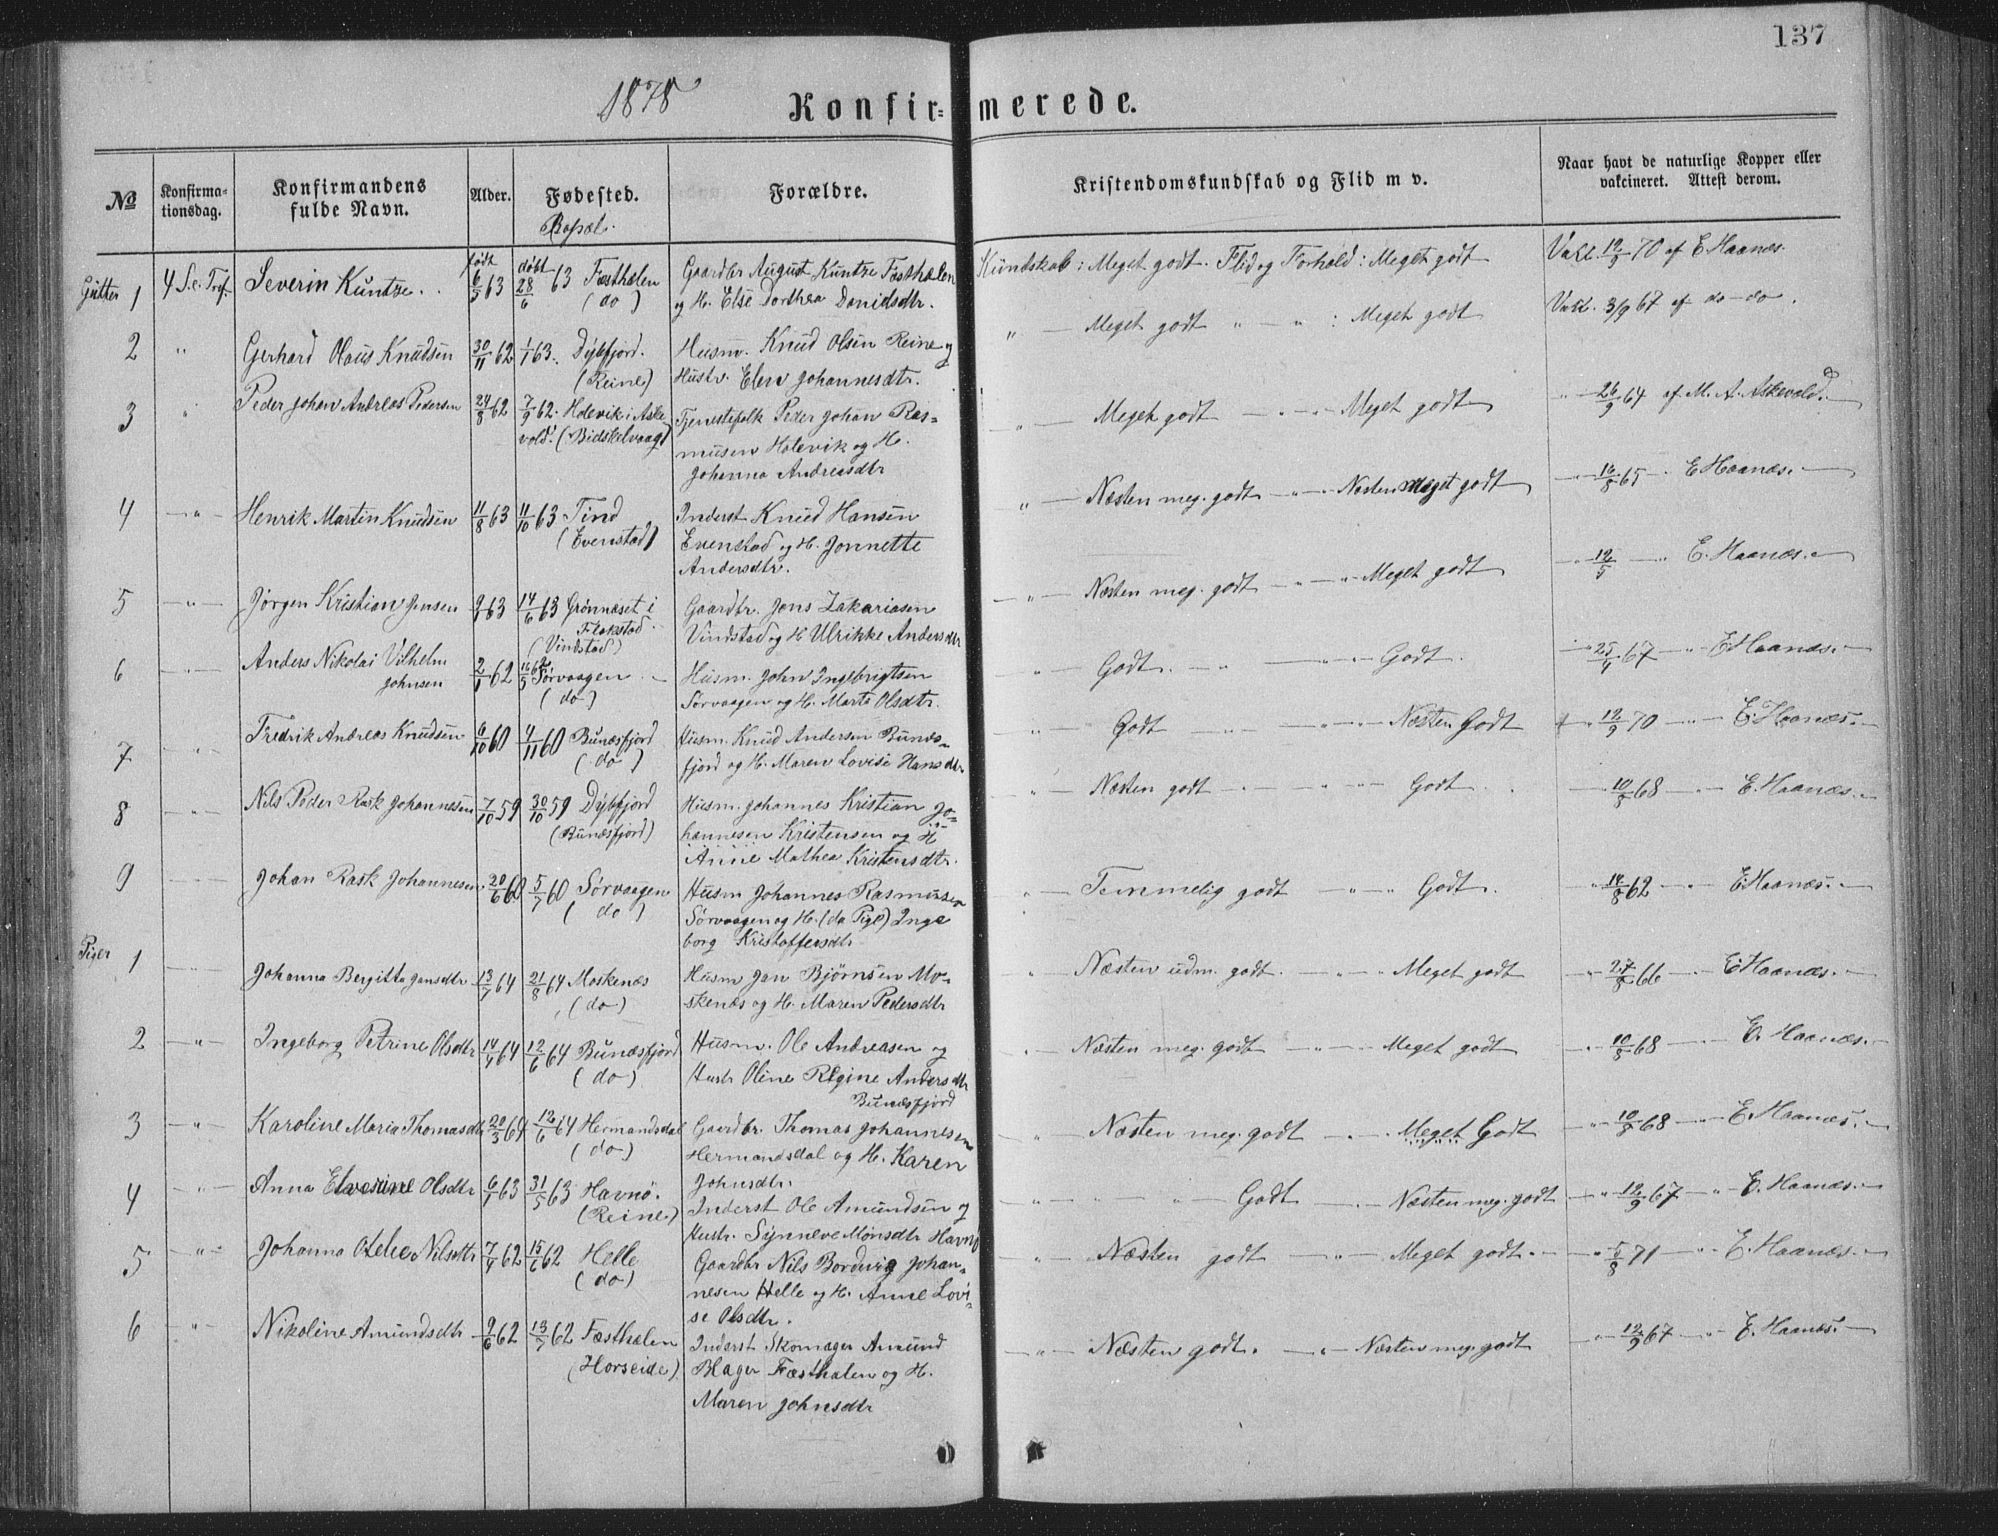 137
1878
Konfir= merede.
No
Konfirma-
tionsdag.
Konfirmandens
fulde Navn.
Alder.
Fødested.
Bopæl.
Forældre.
Kristendomskundskab og Flid m v.
Naar havt de naturlige Kopper eller
vakcineret. Attest derom.
født døbt
Gutter 1 4 S. e. Tref. Severin Kuntze. 6/5 63 28/6 63 Fæsthælen (do) Gaardbr August Kuntze Fæsthælen
og H. Else Dorthea Danielsdtr. Kundskab: Meget godt. Flid og Forhold: Meget godt Vakc. 12/9 70 af E. Haanæs.
2 " Gerhard Olaus Knudsen 30/11 62 1/1 63. Dybfjord. (Reine) Husm. Knud Olsen Reine og
Hustr. Elen Johannesdtr. " Meget godt " " : Meget godt Vakc. 3/9 67 af do - do.
3 " Peder Johan Andreas Pedersen 24/8 62 7/9 62. Holevik i Aske
vold. (Bidskelvaag) Tjenestefolk Peder Johan Ras-
musen Holevik og H.
Johanna Andreasdtr " Meget godt " Meget godt " 26/9 64 af M. A. Askevold.
4 " Henrik Martin Knudsen 11/8 63 11/10 63 Tind (Evenstad) Inderst Knud Hansen
Evenstad og H. Jonnette
Andersdtr. " Næsten meg. godt " Næsten meget godt " 16/8 65 E Haanæs.
5 " Jørgen Kristian Jensen 9/1 63 14/6 63 Grønnæset i
Flakstad
(Vindstad) Gaardbr. Jens Zakariasen
Vindstad og H Ulrikke Andersdtr " Næsten meg. godt " Meget godt 12/5 " E. Haanæs.
6 " Anders Nikolai Vilhelm
Johnsen 2/1 62 16/5 62 Sørvaagen (do) Husm. John Ingebrigtsen
Sørvaagen og H. Marta Olsdtr. " Godt. " Godt. " 25/9 67 " E Haanæs.
7 " Fredrik Andreas Knudsen 6/10 60 4/11 60 Bunæsfjord (do) Husm. Knud Andersen Bunæs-
fjord og H. Maren Lovise Hansdtr " Godt " Næsten Godt " 12/9 70 " E. Haanæs.
8 " Nils Peder Rask Johannesen 7/10 59 30/10 59 Dybfjord
(Bunæsfjord) Husm. Johannes Kristian Jo-
hannesen Kristensen og H
Anne Mathea Kristensdtr. " Næsten godt " Godt 10/8 68 " E. Haanæs.
9 " Johan Rask Johannesen 20/6 60 5/7 60 Sørvaagen (do) Husm Johannes Rasmussen
Sørvaagen og H. (da Pige) Inge
borg Kristoffersdtr " Temmelig godt " Godt. " 14/8 62 " E. Haanæs.
Piger 1 " Johanna Bergitta Jansdtr 13/7 64 21/8 64 Moskenæs (do) Husm Jan Bjørnsen Mo-
skenæs og H. Maren Pedersdtr " Næsten udm. godt " Meget godt " 27/8 66 " E Haanæs.
2 " Ingeborg Petrine Olsdtr 14/4 64 12/6 64 Bunæsfjord (do) Husm. Ole Andreasen og
Hustr Oline Regine Andersdtr
Bunæsfjord " Næsten meg. godt " Meget godt " 10/8 68 " E. Haanæs.
3 " Karoline Maria Thomasdtr 20/3 64 12/6 64 Hermandsdal (do) Gaardbr. Thomas Johannesen
Hermandsdal og H. Karen
Johnsdtr. " Næsten meg. godt " Meget Godt " 10/8 68 " E. Haanæs.
4 " Anna Olsdtr 6/1 63 31/5 63 Havnø.
(Reine.) Inderst Ole Amundsen og
Hustr. Synneve Monsdtr Havnø " " " Godt " Næsten meg. godt " 12/9 67 " E. Haanæs.
5 " Johanna Nilsdtr 7/4 62 15/6 62 Helle (do) Gaardbr Nils Bordevig Johan-
nesen Helle og H. Anne Lovi-
se Olsdtr. " Næsten godt " Meget godt. " 5/8 71 " E. Haanæs.
6 " Nikoline Amundsdtr 9/6 62 13/7 62 Fæsthælen
(Horseide) Inderst Skomager Amund
Blager Fæsthælen og H.
Maren Johnsdtr " Næsten godt. " Næsten meg. godt " 12/9 67 " E. Haanæs.